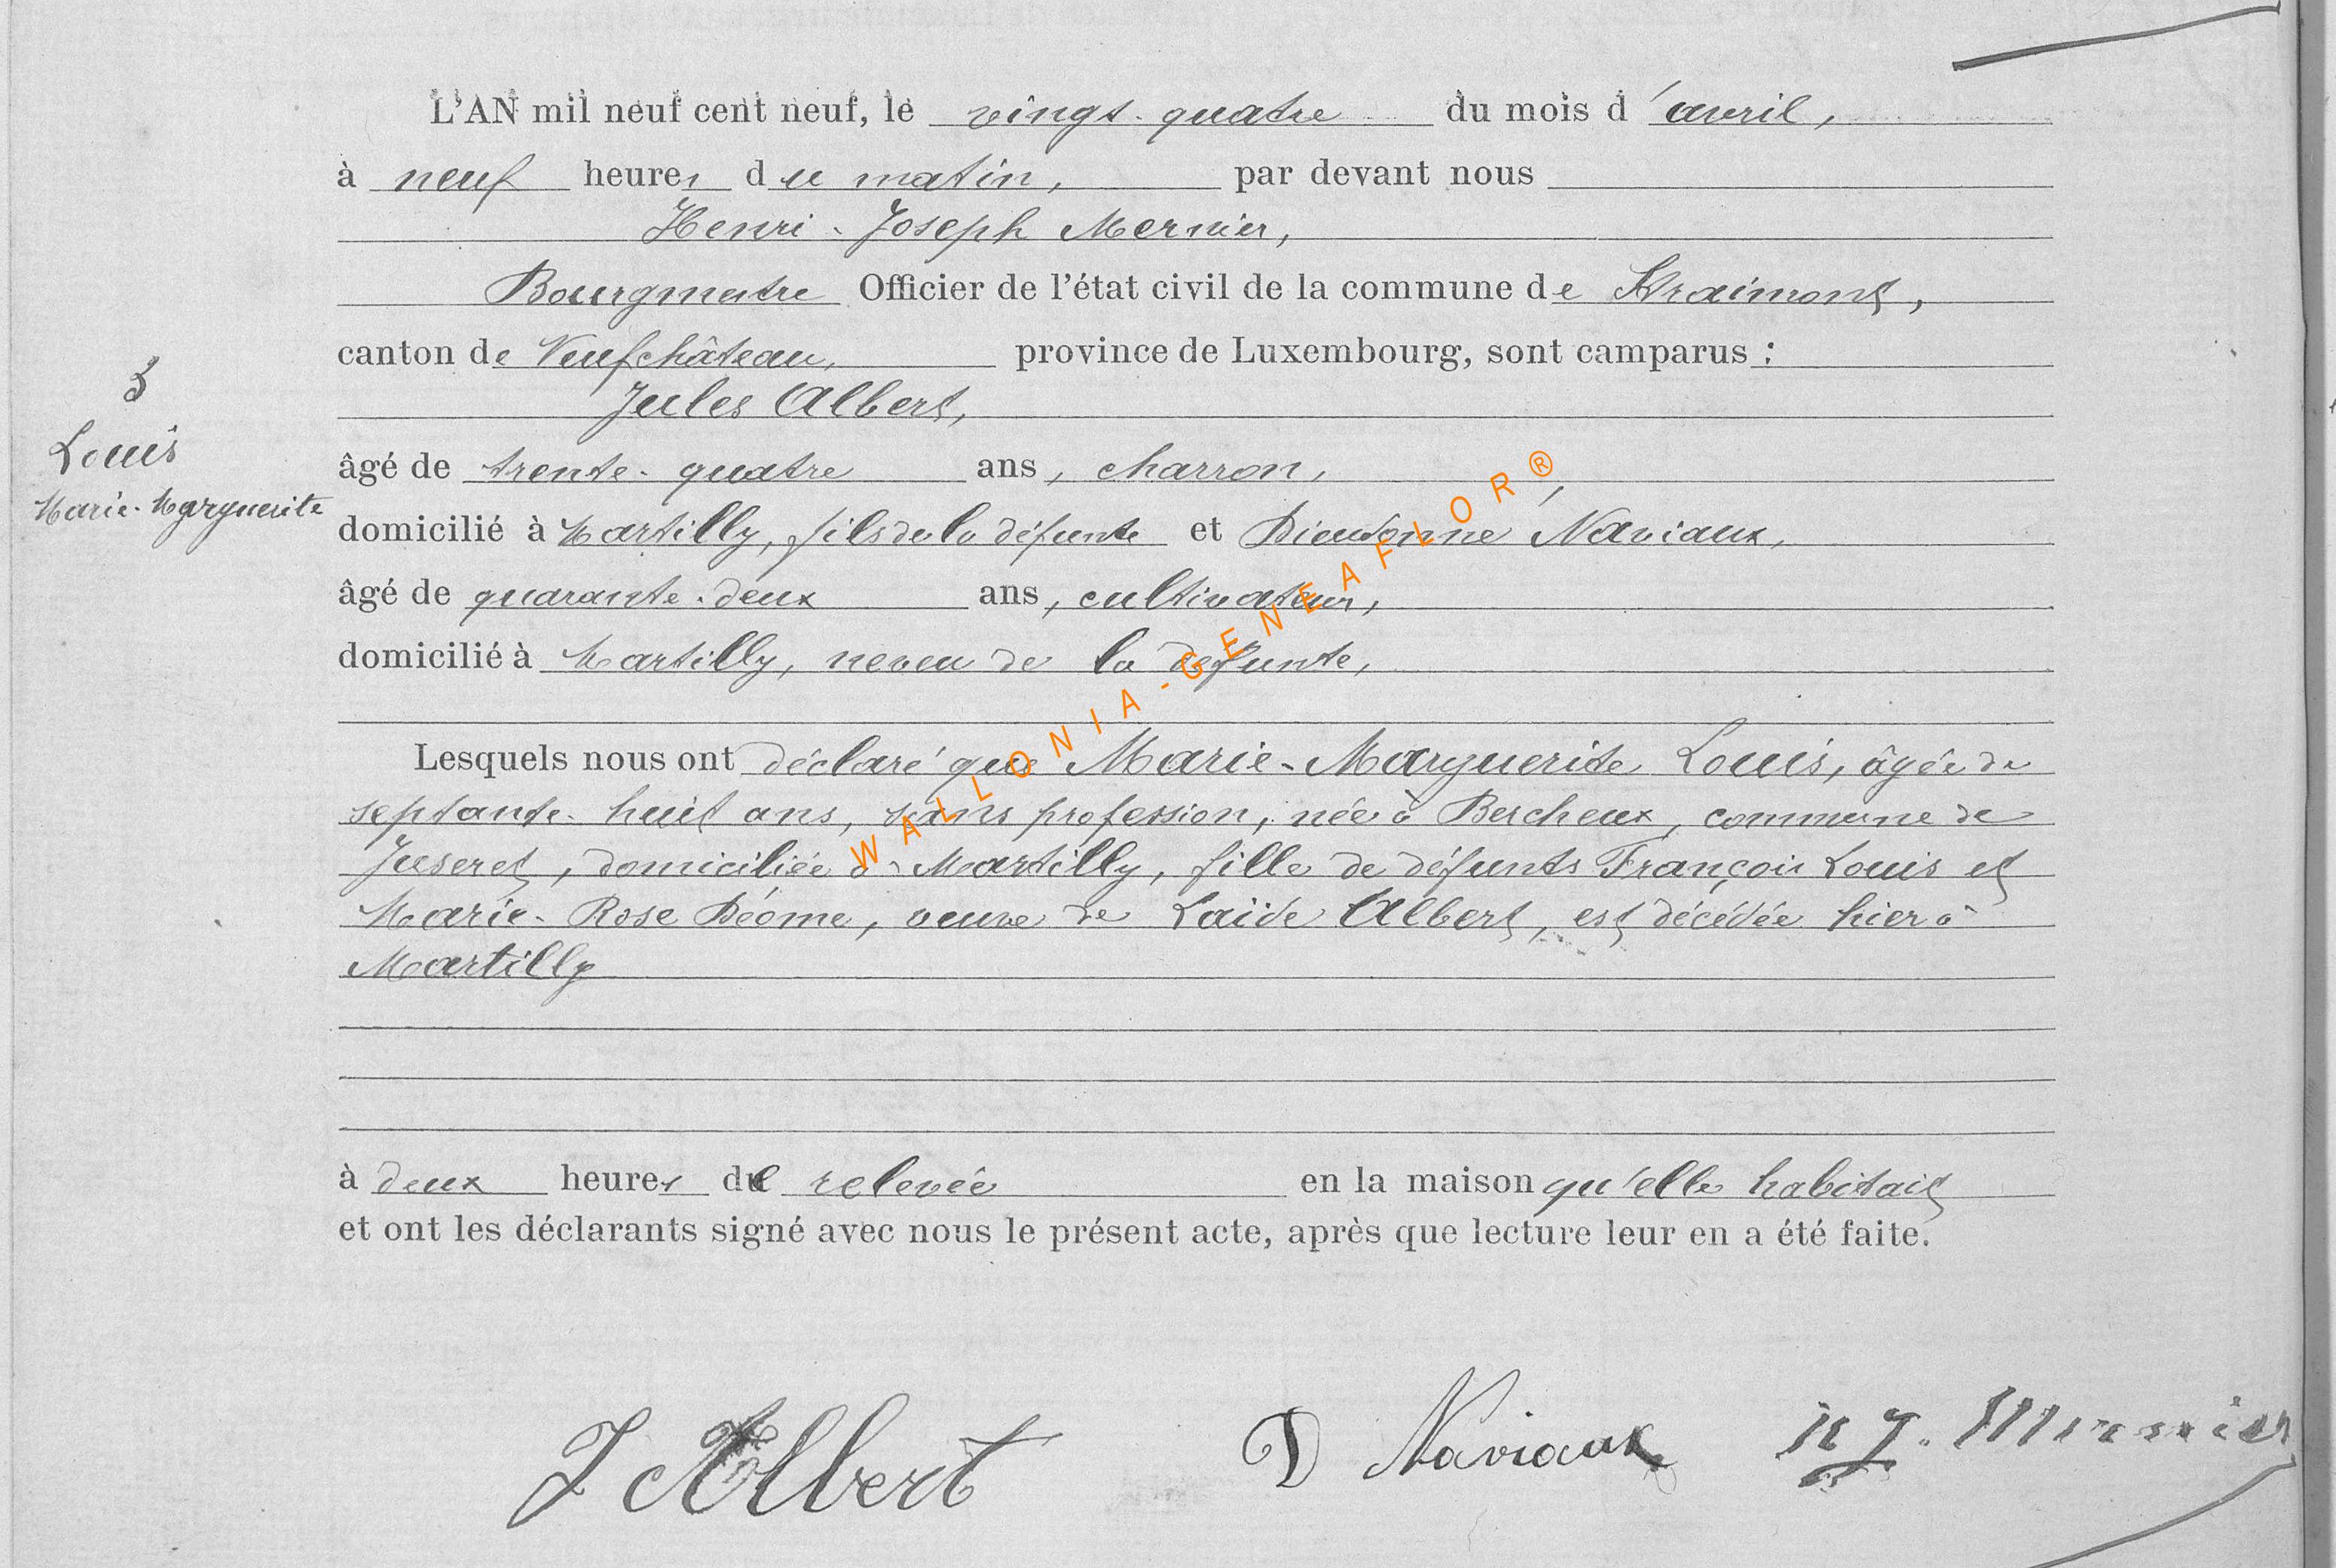 L'AN mil neuf cent neuf, le vingt-quatre du mois d'avril,
à neuf heures du matin, par devant nous
Henri-Joseph Mernier,
Bourgmestre Officier de l'état civil de la commune de Straimont,
canton de Neufchâteau, province de Luxembourg, sont camparus :
Jules Albert,
5
Louis
Marie-Marguerite
âgé de trente-quatre ans, charron,
domicilié à Martilly, fils de la défunte et Dieudonné Naviaux,
âgé de quarante-deux ans, cultivateur,
domicilié à Martilly, neveu de la défunte,
Lesquels nous ont déclaré que Marie-Marguerite Louis, âgée de
septante-huit ans, sans profession, née à Bercheux, commune de
Juseret, domiciliée à Martilly, fille de défunts François Louis et
Marie-Rose Déome, veuve de Laïde Albert, est décédée hier à
Martilly
à deux heures de relevée en la maison qu'elle habitait
et ont les déclarants signé avec nous le présent acte, après que lecture leur en a été faite.
J Albert D Naviaux H J. Mernier
WALLONIA-GENEAFLOR®